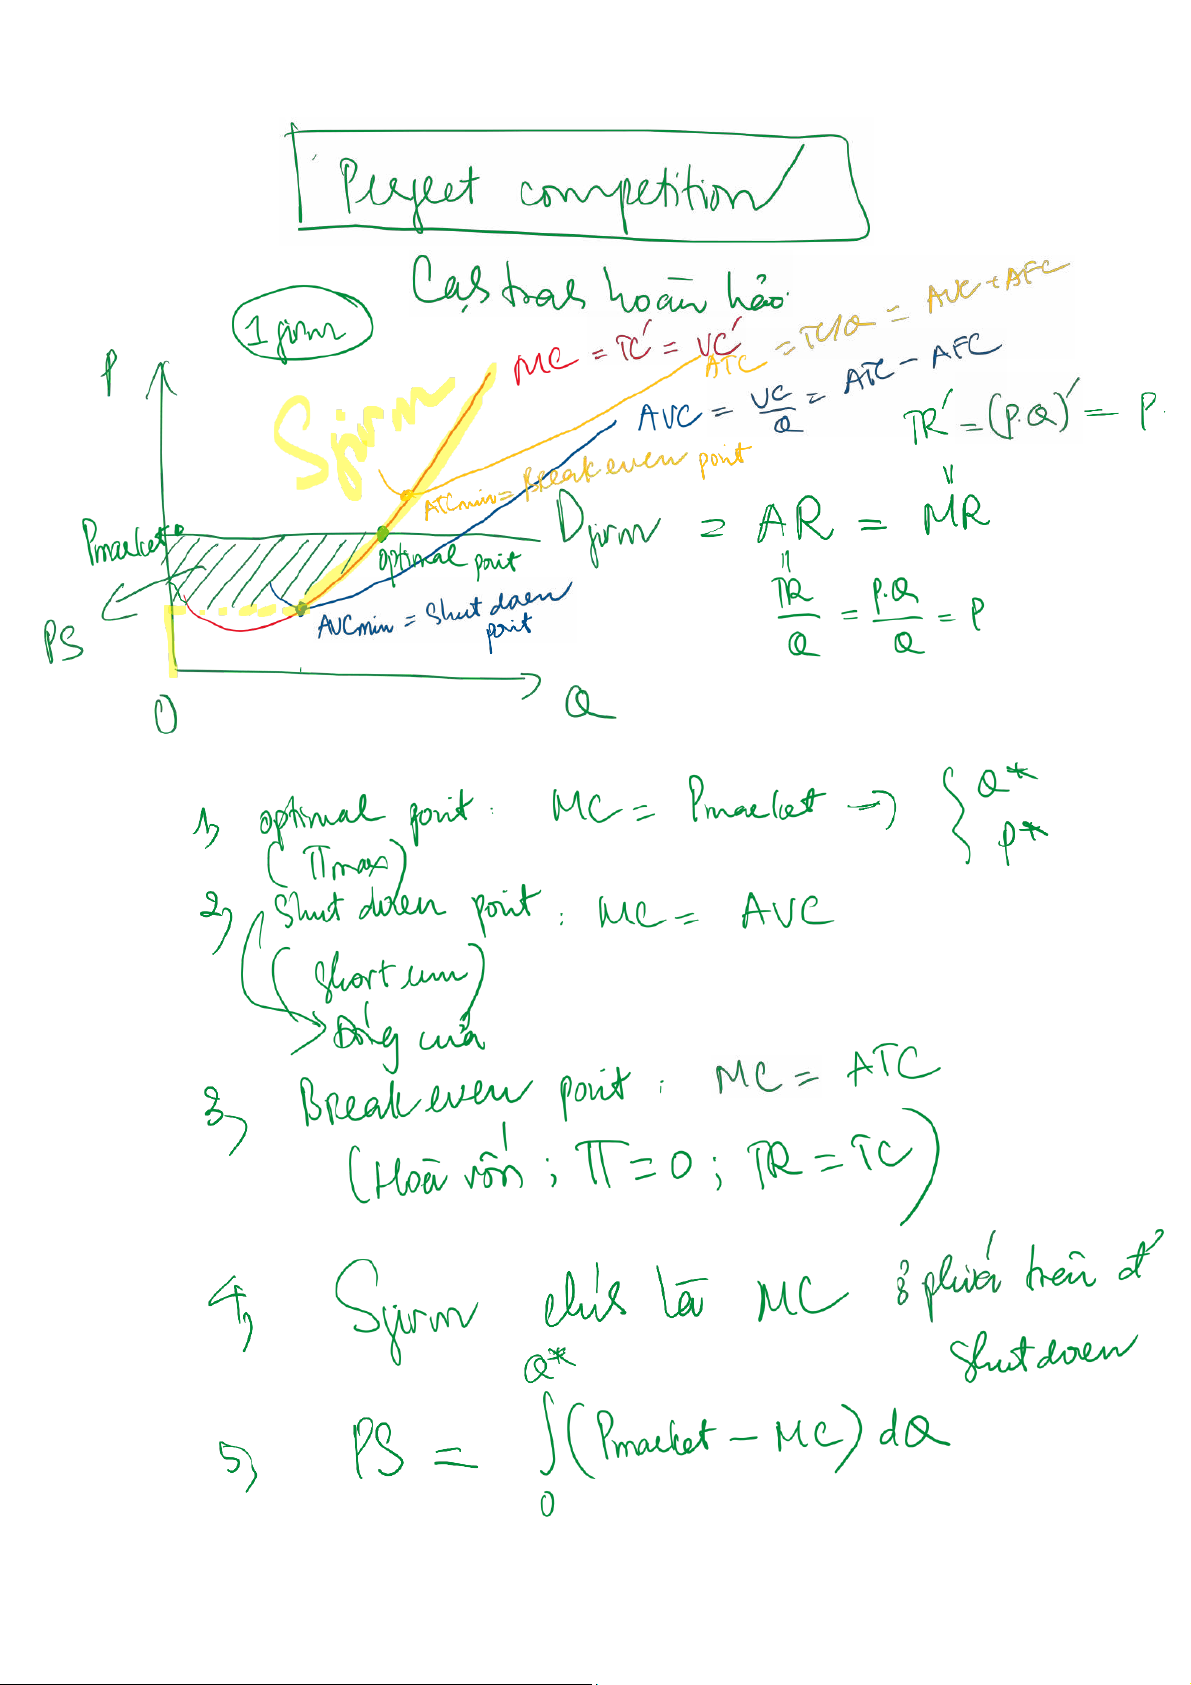 Perfect competition
Cạnh tranh hoàn hảo
1 firm
P
MC = TC' = VC'
ATC = TC/Q = AVC + AFC
AVC = VC/Q = ATC - AFC
Sfirm
TR' = (P.Q)' = P.
ATCmin = Break even point
Pmarket
Dfirm = AR = MR
optimal point
TR/Q = P.Q/Q = P
AVCmin = Shut down point
PS
O
Q
1, optimal point : MC = Pmarket → { Q* P*
(πmax)
2, Shut down point : MC = AVC
(Short run)
→ Đóng cửa
3, Break even point : MC = ATC
(Hoà vốn ; π = 0 ; TR = TC)
4, Sfirm chính là MC ở phía trên đ'
Shut down
5, PS = ∫₀^Q* (Pmarket - MC) dQ